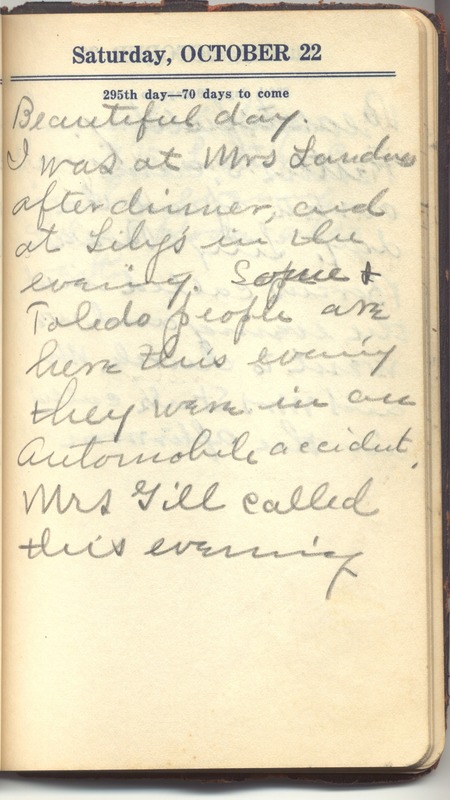 Saturday, OCTOBER 22
295th day—70 days to come
Beautiful day.
I was at Mrs Landers
after dinner, and
at Lily's in the
evening. Some
Toledo people are
here this evening
they were in an
automobile accident,
Mrs Gill called
this evening